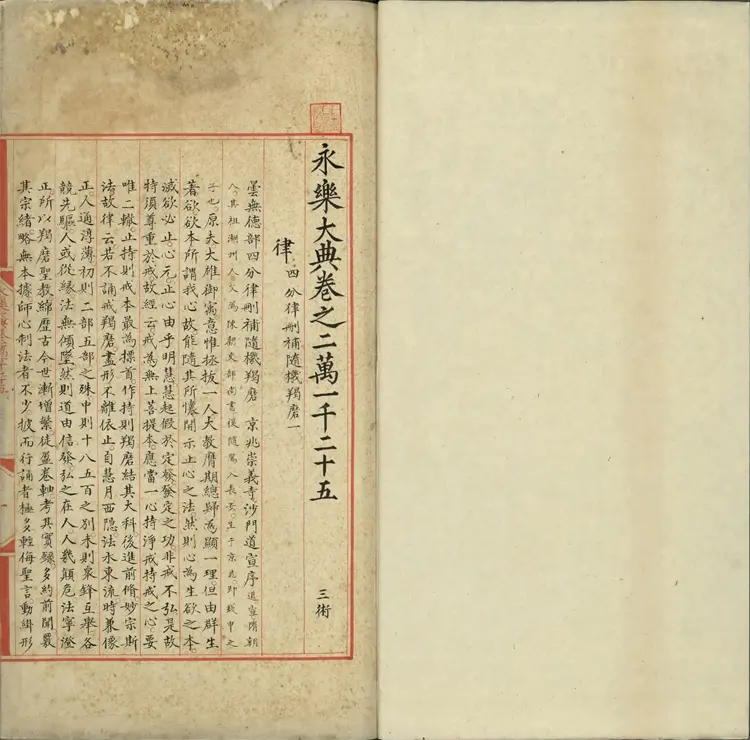 永樂大典卷之二萬一千二十五 三術
律 四分律刪補隨機羯磨一
曇無德部四分律刪補隨機羯磨 京兆崇義寺沙門道宣序道宣隋朝
人。其祖湖州人。父為陳朝吏部尚書後隨駕入長安生于京兆即
申之
子也。原夫大雄御寓意惟拯拔一人大教膺期總歸為顯一理但由群生
著欲欲本所謂我心故能隨其所懷開示止心之法然則心為生欲之本
滅欲必止心元止心由乎明慧慧起假於定發發定之功非戒不弘是故
特須尊重於戒故經云戒為無上菩提本應當一心持淨戒持戒之心要
唯二轍止持則戒本最為標首作持則羯磨結其大科後進前脩妙宗斯
法故律云若不誦戒羯磨盡形不離依止自慧月西隱法永東流時兼像
正人通淳薄初則二部五部之殊中則十八五百之別末則衆鋒互舉各
競先驅人或從緣法無傾墜然則道由信發弘之在人人幾顛危法寧澄
正所以羯磨聖教綿歷古今世漸增繁徒盈卷軸考其實錄多約前聞覈
其宗緒略無本據師心制法者不少披而行誦者極多輕侮聖言動緝形